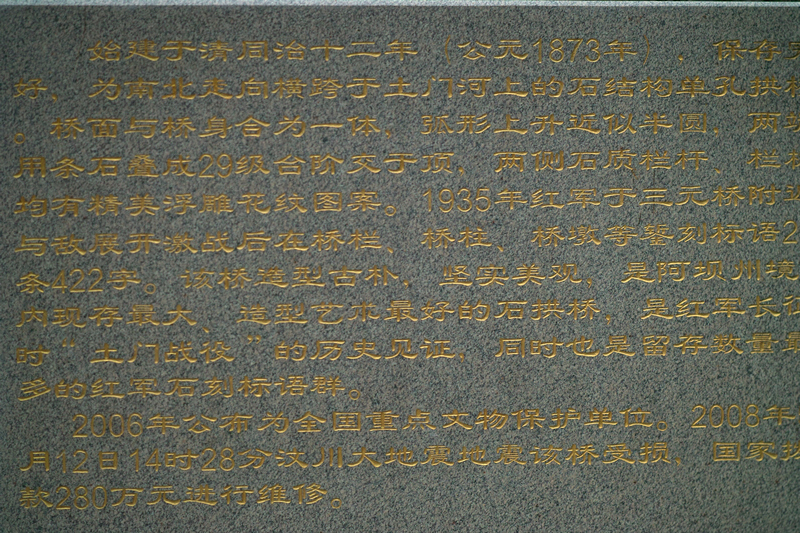 始建于清同治十二年（公元1873年），保存完
好，为南北走向横跨于土门河上的石结构单孔拱桥
。桥面与桥身合为一体，弧形上升近似半圆，两坡
用条石叠成29级台阶交于顶，两侧石质栏杆、栏板
均有精美浮雕花纹图案。1935年红军于三元桥附近
与敌展开激战后在桥栏、桥桩、桥墩等錾刻标语2
条422字。该桥造型古朴，坚实美观，是阿坝州境
内现存最大、造型艺术最好的石拱桥，是红军长征
时“土门战役”的历史见证，同时也是留存数量最
多的红军石刻标语群。
2006年公布为全国重点文物保护单位。2008年
月12日14时28分汶川大地震地震该桥受损，国家拨
款280万元进行维修。